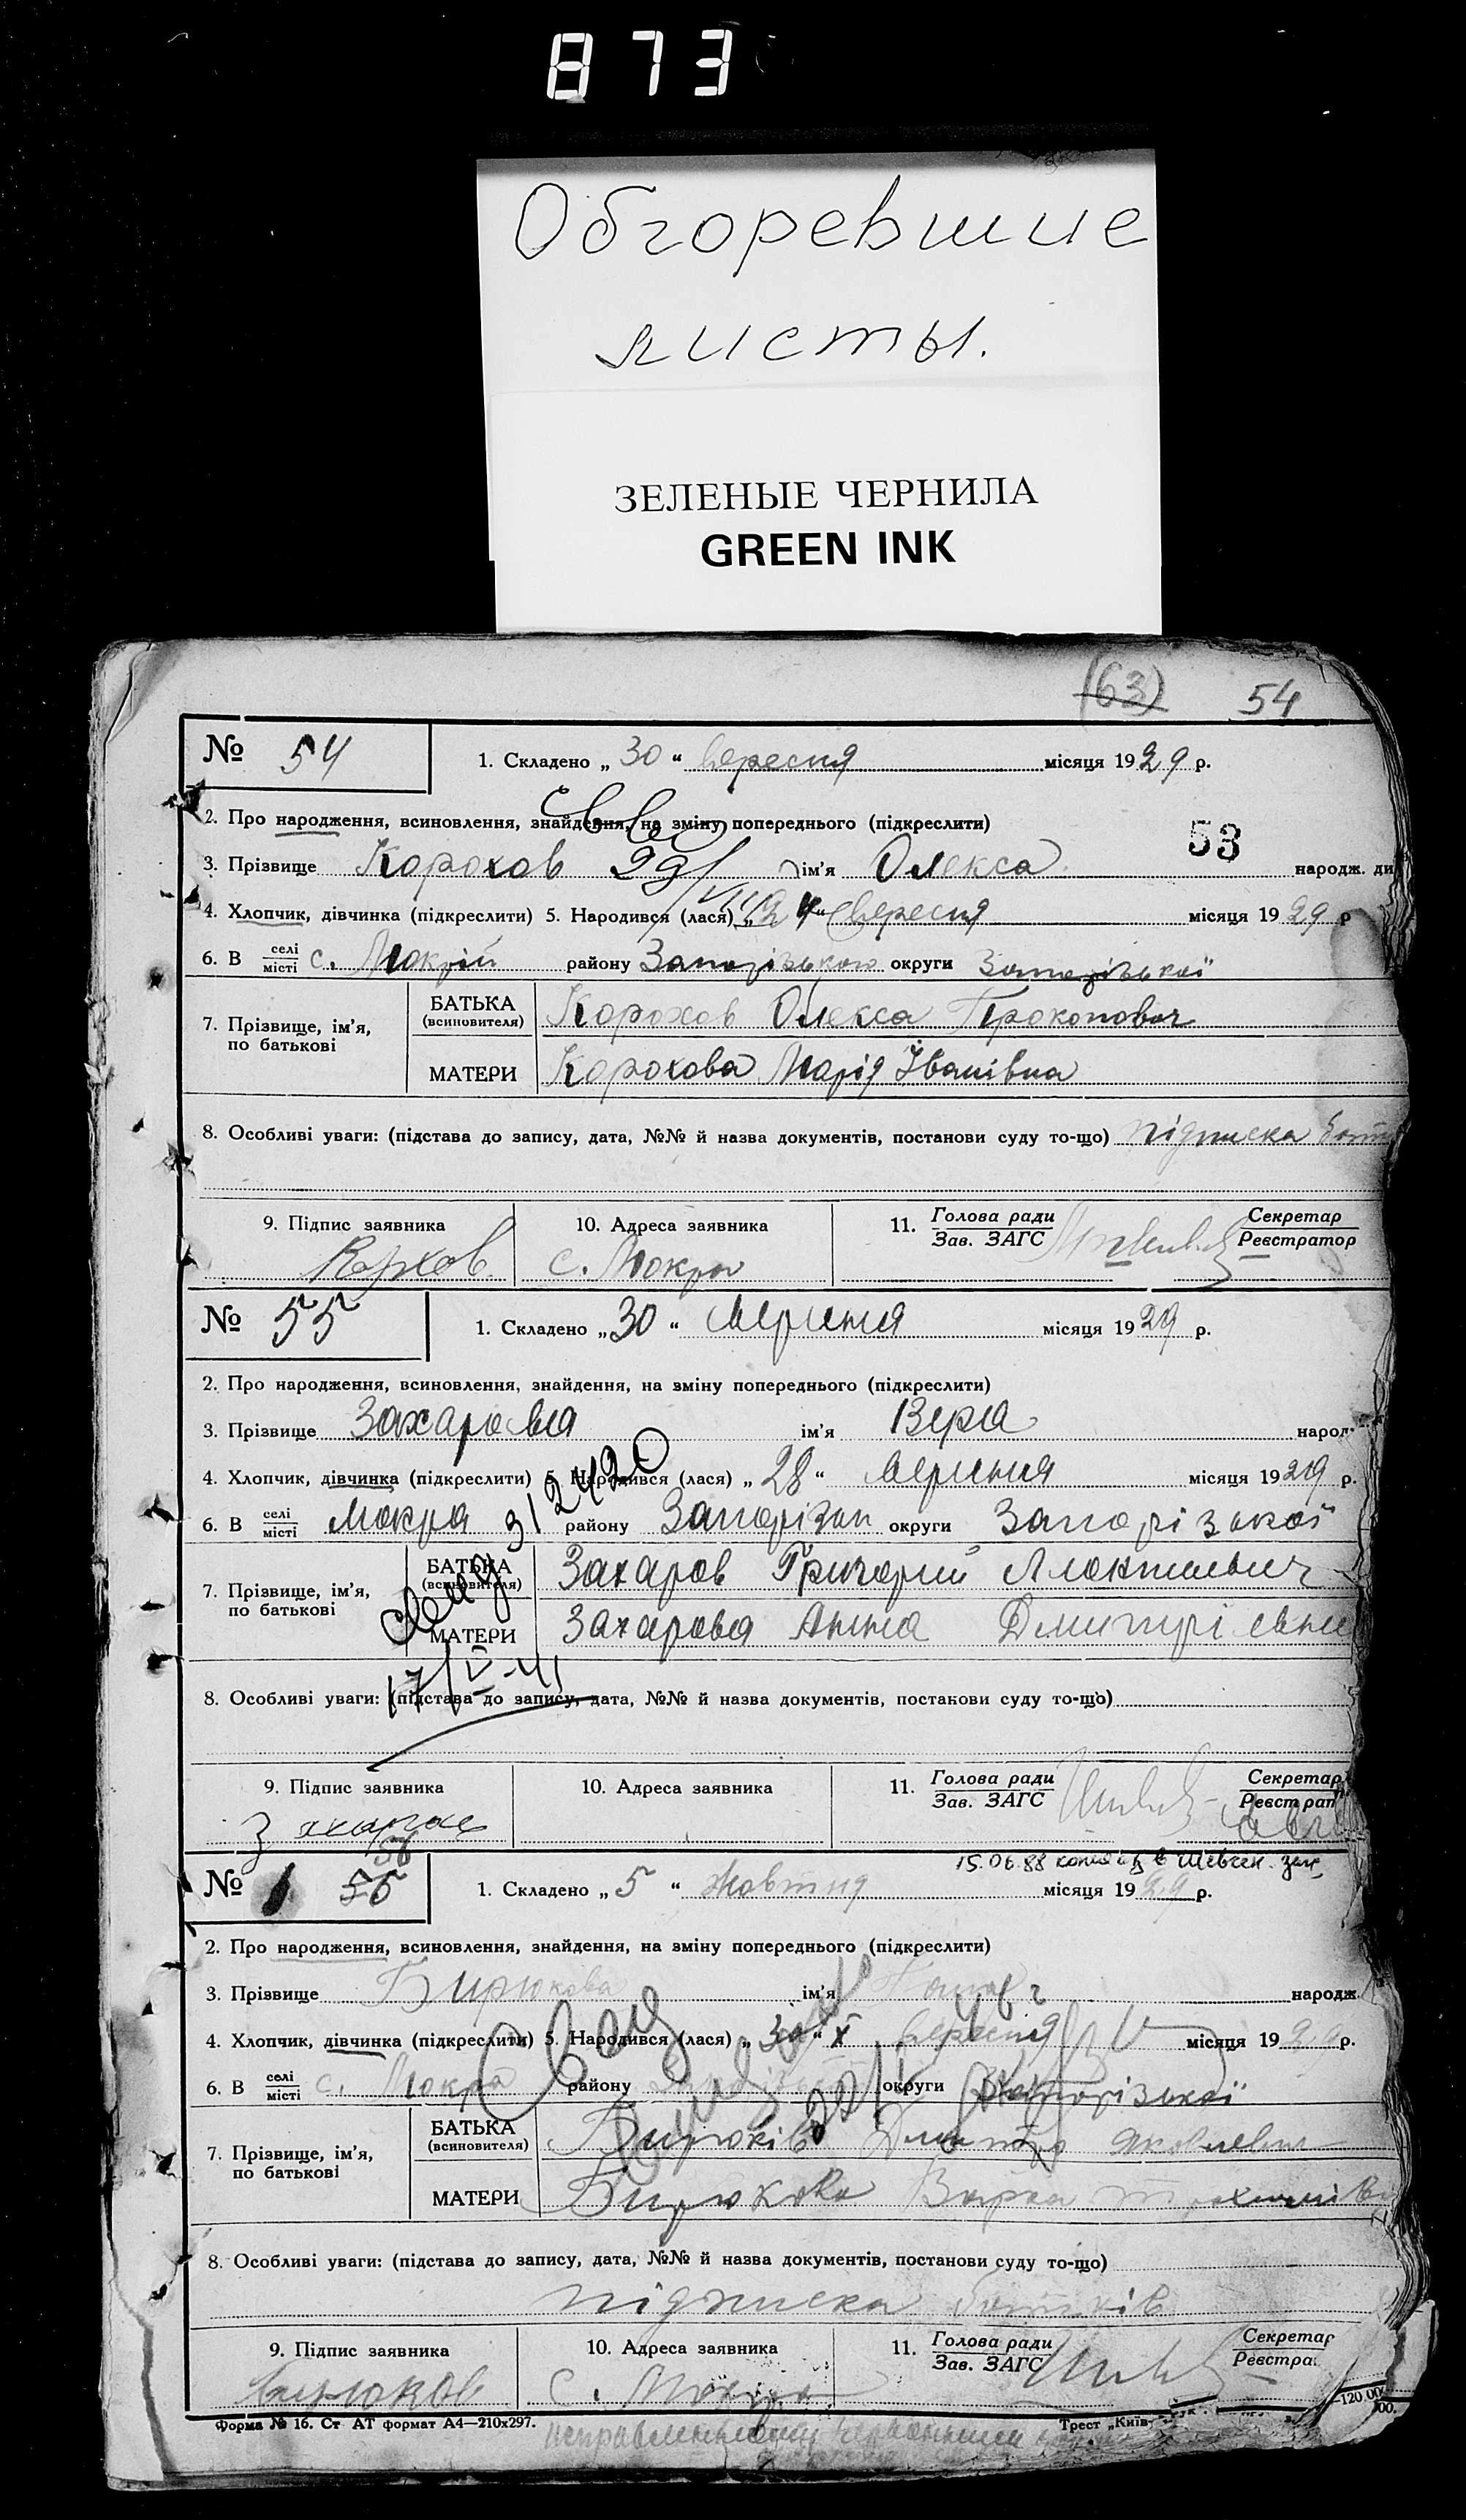 873
Обгоревшие
листы.
ЗЕЛЕНЫЕ ЧЕРНИЛА
GREEN INK
(63) 54
№ 54 1. Складено „ 30 “ вересня місяця 1929 р.
2. Про народження, всиновлення, знайдення, на зміну попереднього (підкреслити)
53
3. Прізвище Корохов ім'я Олекса народж. ди
4. Хлопчик, дівчинка (підкреслити) 5. Народився (лася) „ 24 “ вересня місяця 1929 р
6. В селі місті с. Мокрій району Запорізького округи Запорізької
7. Прізвище, ім'я, по батькові
БАТЬКА (всиновителя) Корохов Олекса Прокопович
МАТЕРИ Корохова Марія Іванівна
8. Особливі уваги: (підстава до запису, дата, №№ й назва документів, постанови суду то-що) підписка
9. Підпис заявника 10. Адреса заявника 11. Голова ради Зав. ЗАГС Секретар Реєстратор
Корхов с. Мокра
№ 55 1. Складено „ 30 “ вересня місяця 1929 р.
2. Про народження, всиновлення, знайдення, на зміну попереднього (підкреслити)
3. Прізвище Захарова ім'я Вера народ
4. Хлопчик, дівчинка (підкреслити) 5. Народився (лася) „ 28 “ вересня місяця 1929 р.
6. В селі місті Мокра району Запорізьк округи Запорізької
312420
7. Прізвище, ім'я, по батькові
БАТЬКА (всиновителя) Захаров Григорий
МАТЕРИ Захарова Анна Дмитріевна
17/V-41
8. Особливі уваги: (підстава до запису, дата, №№ й назва документів, постанови суду то-що)
9. Підпис заявника 10. Адреса заявника 11. Голова ради Зав. ЗАГС Секретар Реєстрат
Захаров
15.06.88 в Шевчен. заг
56
№ 55 1. Складено „ 5 “ Жовтня місяця 1929 р.
2. Про народження, всиновлення, знайдення, на зміну попереднього (підкреслити)
3. Прізвище Бирюкова ім'я народж.
4. Хлопчик, дівчинка (підкреслити) 5. Народився (лася) „ 30 “ вересня місяця 1929 р.
6. В селі місті с. Мокра району округи Запорізької
7. Прізвище, ім'я, по батькові
БАТЬКА (всиновителя) Бирюків Дмитро Яковлевич
МАТЕРИ Бирюкова Варка
8. Особливі уваги: (підстава до запису, дата, №№ й назва документів, постанови суду то-що)
підписка батьків
9. Підпис заявника 10. Адреса заявника 11. Голова ради Зав. ЗАГС Секретар Реєстра.
Бирюков с. Мокра
Форма № 16. Ст АТ формат А4—210х297. Трест „Київ 120.00